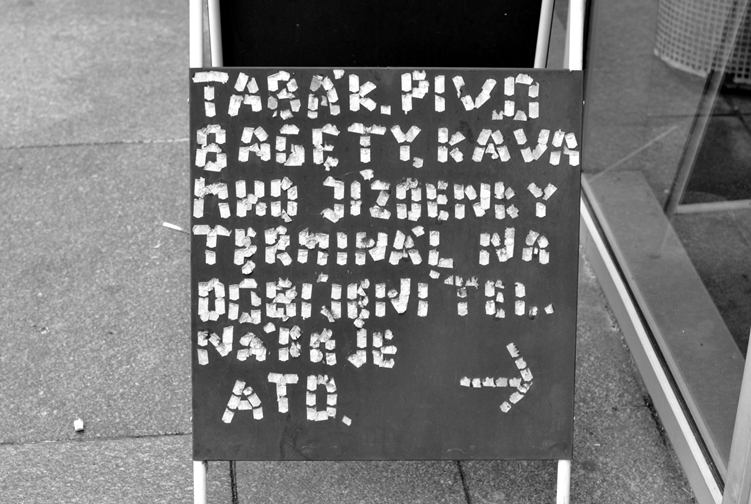 TABÁK. PIVO
BAGETY. KAVA
MHD JÍZDENKY
TERMINÁL NA
DOBÍJENÍ TEL.
NÁBÍJE
ATD.